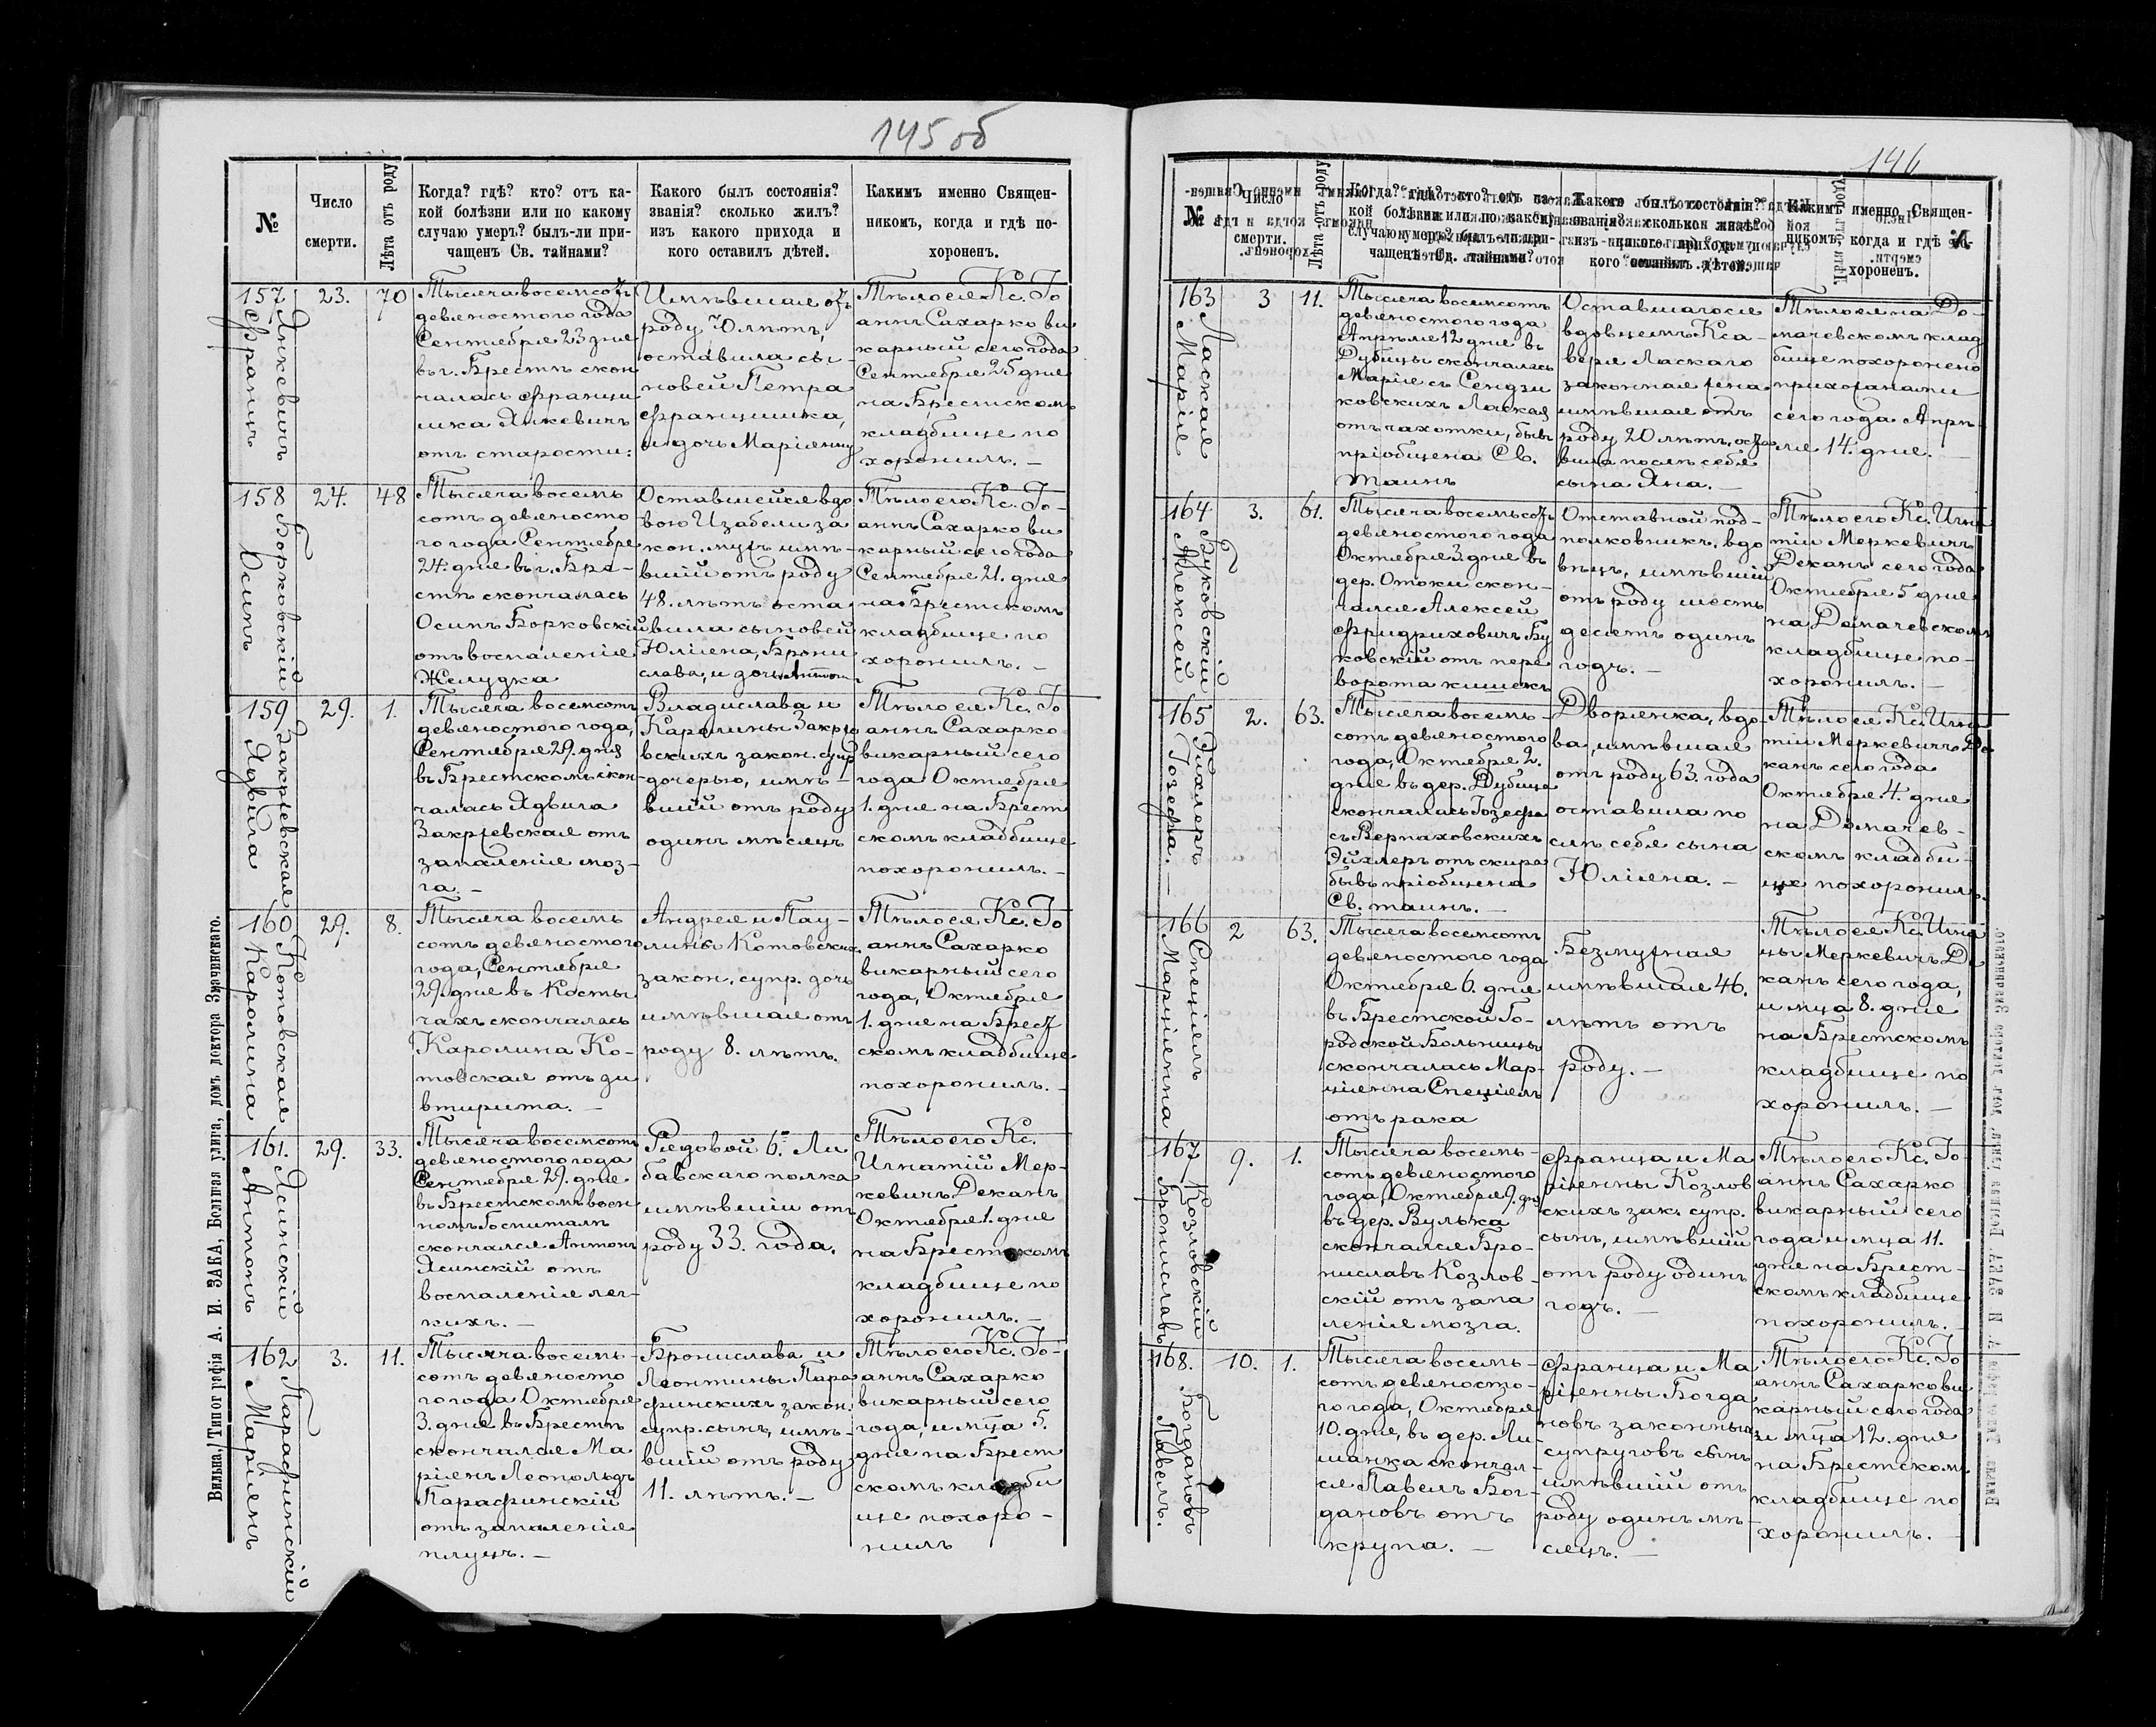 145 об
№
Число
смерти.
Лѣта отъ роду
Когда? гдѣ? кто? отъ ка-
кой болѣзни или по какому
случаю умеръ? былъ-ли при-
чащенъ Св. тайнами?
Какого былъ состоянія?
званія? сколько жилъ?
изъ какого прихода и
кого оставилъ дѣтей.
Какимъ именно Священ-
никомъ, когда и гдѣ по-
хороненъ.
157
Янкевичъ
Францъ
23.
70
Тысяча восемсотъ
девяностого года
Сентября 23 дня
въ г. Брестѣ скон
чалась Францы
шка Янкевичъ
отъ старости:
Имѣвшая отъ
роду 70 лѣтъ,
оставила сы-
новей Петра
Францишка,
и дочь Маріянну
Тѣло ея Кс. Іо
аннъ Сахарко ви
карный сего года
Сентября 25 дня
на Брестскомъ
кладбище по
хоронилъ. —
158
Борковскій
Осипъ
24.
48
Тысяча восемь
сотъ девяносто
го года Сентября
24. дня въ г. Бре-
стѣ скончалась
Осипъ Борковскій
отъ воспаленія
Желудка
Оставшейся вдо
вою Изабели за
кон. мужъ имѣ-
вшій отъ роду
48. лѣтъ оста
вила сыновей
Юліяна, Брони
слава, и дочь Антон
Тѣло его Кс. Іо-
аннъ Сахарко ви
карный сего года
Сентября 21. дня
на Брестскомъ
кладбище по
хоронилъ. —
159
Закржевская
Ядвига
29.
1.
Тысяча восемсотъ
девяностого года,
Сентября 29. дня
въ Брестскомъ скон-
чалась Ядвига
Закржевская отъ
запаленія моз-
га. —
Владислава и
Каролины Закрже
вскихъ закон. супр
дочерью, имѣ-
вшій отъ роду
одинъ мѣсяцъ
Тѣло ея Кс. Іо
аннъ Сахарко
викарный сего
года Октября
1. дня на Брест
скомъ кладбище
похоронилъ. —
160
Котовская
Каролина
29.
8.
Тысяча восемь
сотъ девяностого
года, Сентября
29. дня въ Косты
чахъ скончалась
Каролина Ко-
товская отъ ди
втирита. —
Андрея и Пау-
лины Котовскихъ
закон. супр. дочь
имѣвшая отъ
роду 8. лѣтъ.
Тѣло ея Кс. Іо
аннъ Сахарко
викарный сего
года, Октября
1. дня на Брест
скомъ кладбище
похоронилъ. —
161.
Ясинскій
Антонъ
29.
33.
Тысяча восемсотъ
девяностого года
Сентября 29. дня
въ Брестскомъ воен
номъ Госпиталѣ
скончался Антонъ
Ясинскій отъ
воспаленія лег-
кихъ. —
Рядовой 6го Ли
бавскаго полка
имѣвшій отъ
роду 33. года.
Тѣло его Кс.
Игнатій Мер-
кевичъ Деканъ
Октября 1. дня
на Брестскомъ
кладбище по
хоронилъ. —
162
Парафинскій
Маріянъ
3.
11.
Тысяча восемь-
сотъ девяносто
го года Октября
3. дня въ Брестѣ
скончался Ма
ріянъ Леопольдъ
Парафинскій
отъ запаленія
плуцъ. —
Бронислава и
Леонтины Пара
финскихъ закон.
супр. сынъ, имѣ-
вшій отъ роду
11. лѣтъ. —
Тѣло его Кс. Іо-
аннъ Сахарко
викарный сего
года, и мца 5.
дня на Брест
скомъ кладби
ще похоро-
нилъ
Вильна, Типографія А. И. ЗАКА, Большая улица, домъ доктора Змачинскаго.
146
№
Число
смерти.
Лѣта отъ роду
Когда? гдѣ? кто? отъ ка-
кой болѣзни или по какому
случаю умеръ? былъ-ли при-
чащенъ Св. тайнами?
Какого былъ состоянія?
званія? сколько жилъ?
изъ какого прихода и
кого оставилъ дѣтей.
Какимъ именно Священ-
никомъ, когда и гдѣ по-
хороненъ.
163
Лаская
Марія
3
11.
Тысяча восемсотъ
девяностого года
Апрѣля 12 дня въ
Дубицы скончалась
Марія съ Сендзи
ковскихъ Лаская
отъ чахотки, бывъ
пріобщена Св.
таинъ
Оставшагося
вдовцемъ Кса-
верія Ласкаго
законная жена
имѣвшая отъ
роду 20 лѣтъ, оста
вила послѣ себя
сына Яна. —
Тѣло ея на До-
мачевскомъ клад
бище похоронено
прихожанами
сего года Апрѣ-
ля 14. дня. —
164
Буковскій
Алексей
3.
61.
Тысяча восемьсотъ
девяностого года
Октября 3. дня въ
дер. Отоки скон-
чался Алексей
Фридриховичъ Бу
ковскій отъ пере
ворота кишекъ
Отставной под-
полковникъ, вдо
вецъ, имѣвшій
отъ роду шесть
десятъ одинъ
годъ. —
Тѣло его Кс. Игна
тій Меркевичъ
Деканъ сего года
Октября 5 дня
на Домачевскомъ
кладбище по-
хоронилъ. —
165
Эйхлеръ
Іозефа. —
2.
63.
Тысяча восемь-
сотъ девяностого
года, Октября 2.
дня въ дер. Дубица
скончалась Іозефа
съ Верпаховскихъ
Эйхлеръ отъ скира
бывъ пріобщена
Св. таинъ. —
Дворянка, вдо-
ва, имѣвшая
отъ роду 63. года
оставила по
слѣ себя сына
Юліяна. —
Тѣло ея Кс. Игна
тій Меркевичъ Де
канъ сего года
Октября 4. дня
на Домачев-
скомъ кладби-
щѣ похоронилъ.
166
Спеціялъ
Марціянна
2
63.
Тысяча восемсотъ
девяностого года
Октября 6. дня
въ Брестской Го-
родской Больницы
скончалась Мар-
ціянна Спеціялъ
отъ рака
Безмужная
имѣвшая 46.
лѣтъ отъ
роду. —
Тѣло ея Кс. Игна
цы Меркевичъ Де
канъ сего года,
и мца 8. дня
на Брестскомъ
кладбище по
хоронилъ. —
167
Козловскій
Брониславъ
9.
1.
Тысяча восемь-
сотъ девяностого
года, Октября 9. дня
въ дер. Вулька
скончался Бро-
ниславъ Козлов-
скій отъ запа
ленія мозга.
Франца и Ма
ріянны Козлов
скихъ зак. супр.
сынъ, имѣвшій
отъ роду одинъ
годъ. —
Тѣло его Кс. Іо-
аннъ Сахарко
викарный сего
года и мца 11.
дня на Брест-
скомъ кладбище
похоронилъ. —
168.
Богдановъ
Павелъ.
10.
1.
Тысяча восемь-
сотъ девяносто-
го года, Октября
10. дня, въ дер. Ли
шанка скончал-
ся Павелъ Бог-
дановъ отъ
крупа. —
Франца и Ма
ріянны Богда
новъ законныхъ
супруговъ сынъ
имѣвшій отъ
роду одинъ мѣ-
сяцъ. —
Тѣло его Кс. Іо
аннъ Сахарко ви
карный сего года
и мца 12. дня
на Брестскомъ
кладбище по
хоронилъ. —